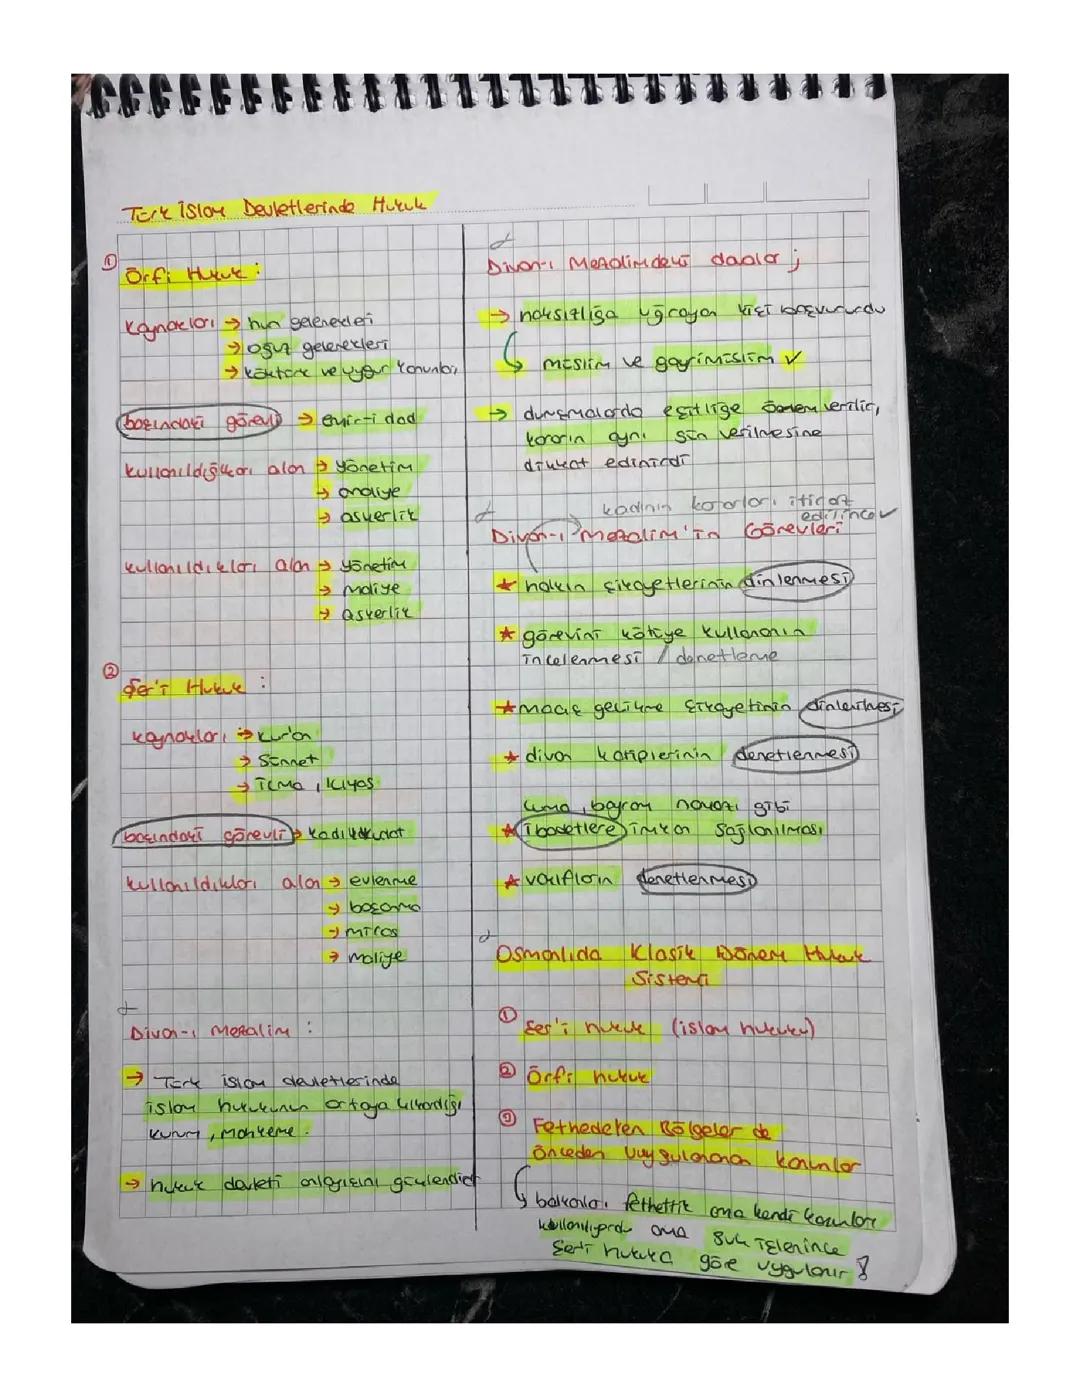 Türk İslam Devletlerinde Hukuk
① Örfi Hukuk :
Kaynakları → hun gelenekleri
→ oğuz gelenekleri
→ köktürk ve uygur kanunları
başındaki görevli → emir-i dad
kullanıldığıkarı alan → yönetim
→ maliye
→ askerlik
kullanıldıkları alan → yönetim
→ maliye
→ askerlik
② Şer'i Hukuk :
kaynakları → kur'an
→ sünnet
→ icma, kıyas
başındaki görevli → kadıl kudat
kullanıldıkları alan → evlenme
→ boşanma
→ miras
→ maliye
Divan-ı Mezalim :
→ Türk islam devletlerinde
islam hukukunun ortaya çıkardığı
kurum, mahkeme.
→ hukuk devleti anlayışını güçlendirir
Divan-ı Mezalimdeki davalar ;
→ haksızlığa uğrayan kişi başvururdu
müslim ve gayrimüslim ✓
→ duruşmalarda eşitliğe önem verilir,
kararın aynı gün verilmesine
dikkat edinirdi
kadının kararları itiraz
edilince ✓
Divan-ı Mezalim'in Görevleri
★ halkın şikayetlerinin dinlenmesi
★ görevini kötüye kullananın
incelenmesi / denetleme
★ maaş gecikme şikayetinin dinlenmesi
★ divan katiplerinin denetlenmesi
cuma, bayram namazı gibi
★ ibadetlere imkan sağlanılması
★ vakıfların denetlenmesi
Osmanlıda Klasik Dönem Hukuk
Sistemi
① şer'i hukuk (islam hukuku)
② Örfi hukuk
③ Fethedilen Bölgeler de
Önceden Uygulanan kanunlar
balkanları fethettik ama kendi kanunları
kullanılıyordu ama suç işlenince
şer'i hukuka göre uygulanır !